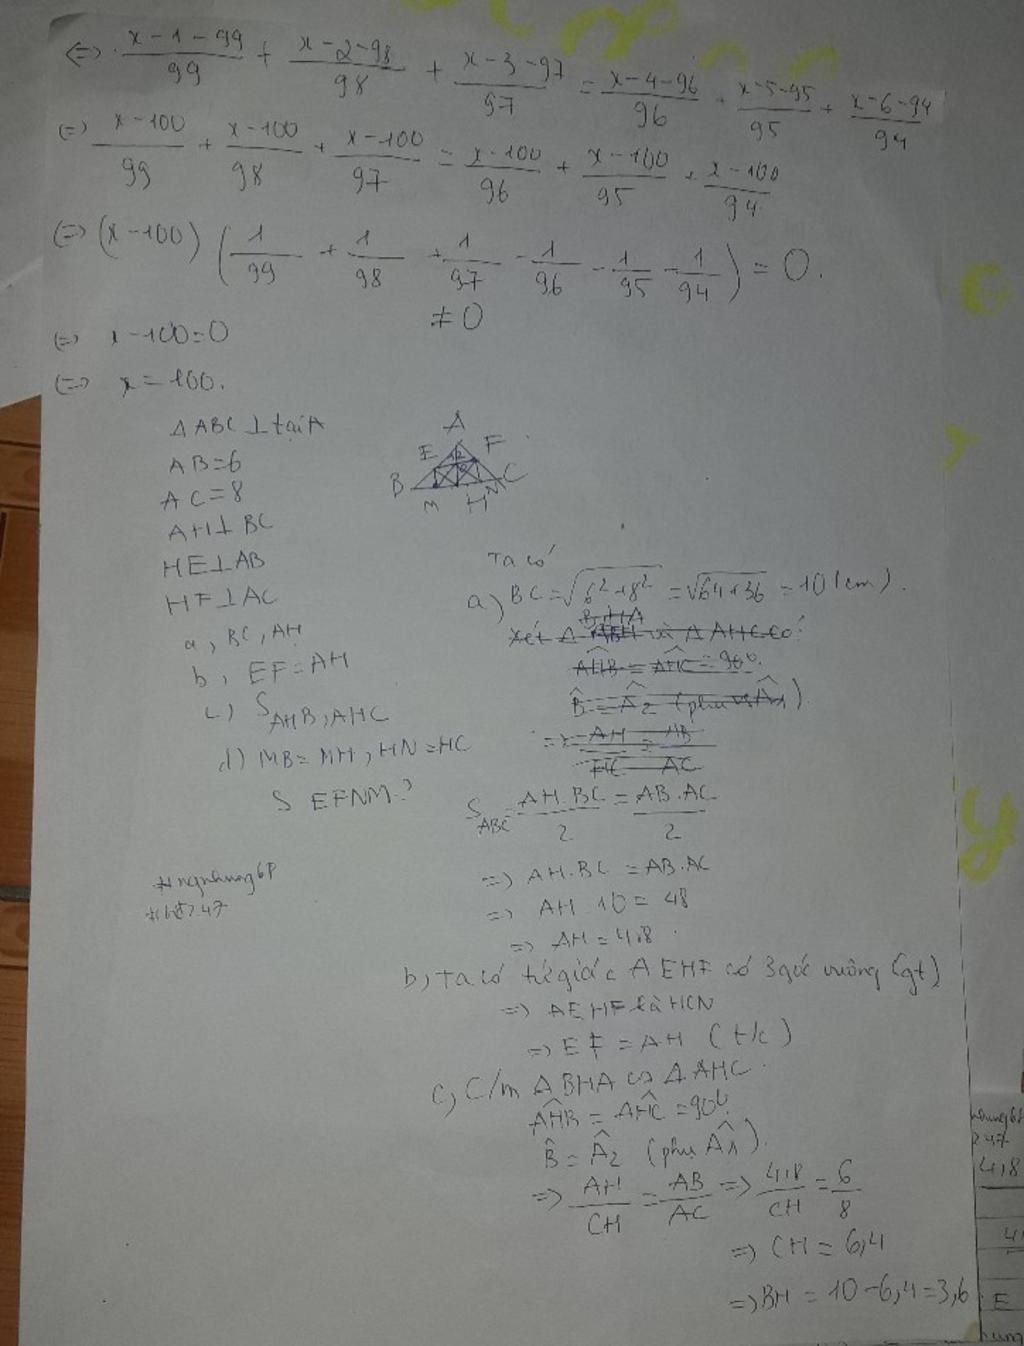 <=> x-1-99/99 + x-2-98/98 + x-3-97/97 = x-4-96/96 + x-5-95/95 + x-6-94/94
<=> x-100/99 + x-100/98 + x-100/97 = x-100/96 + x-100/95 + x-100/94
<=> (x-100) (1/99 + 1/98 + 1/97 - 1/96 - 1/95 - 1/94) = 0.
≠0
<=> x-100=0
<=> x=100.
Δ ABC ⊥ tại A
AB=6
AC=8
AH⊥BC
HE⊥AB
HF⊥AC
a, BC, AH
b, EF=AH
c) S AHB, AHC
d) MB=MH, HN=HC
S EFNM?
A
E F
B C
M H N
Ta có
a) BC=√6²+8² = √64+36 = 10 (cm).
S ABC = AH.BC/2 = AB.AC/2
=> AH.BC = AB.AC
=> AH.10 = 48
=> AH = 4,8
b, Ta có tứ giác AEHF có 3 góc vuông (gt)
=> AEHF là HCN
=> EF = AH (t/c)
c, C/m Δ BHA ∽ Δ AHC.
AĤB = AĤC = 90°
B̂ = Â2 (phụ Â1)
=> AH/CH = AB/AC => 4,8/CH = 6/8
=> CH = 6,4
=> BH = 10-6,4=3,6